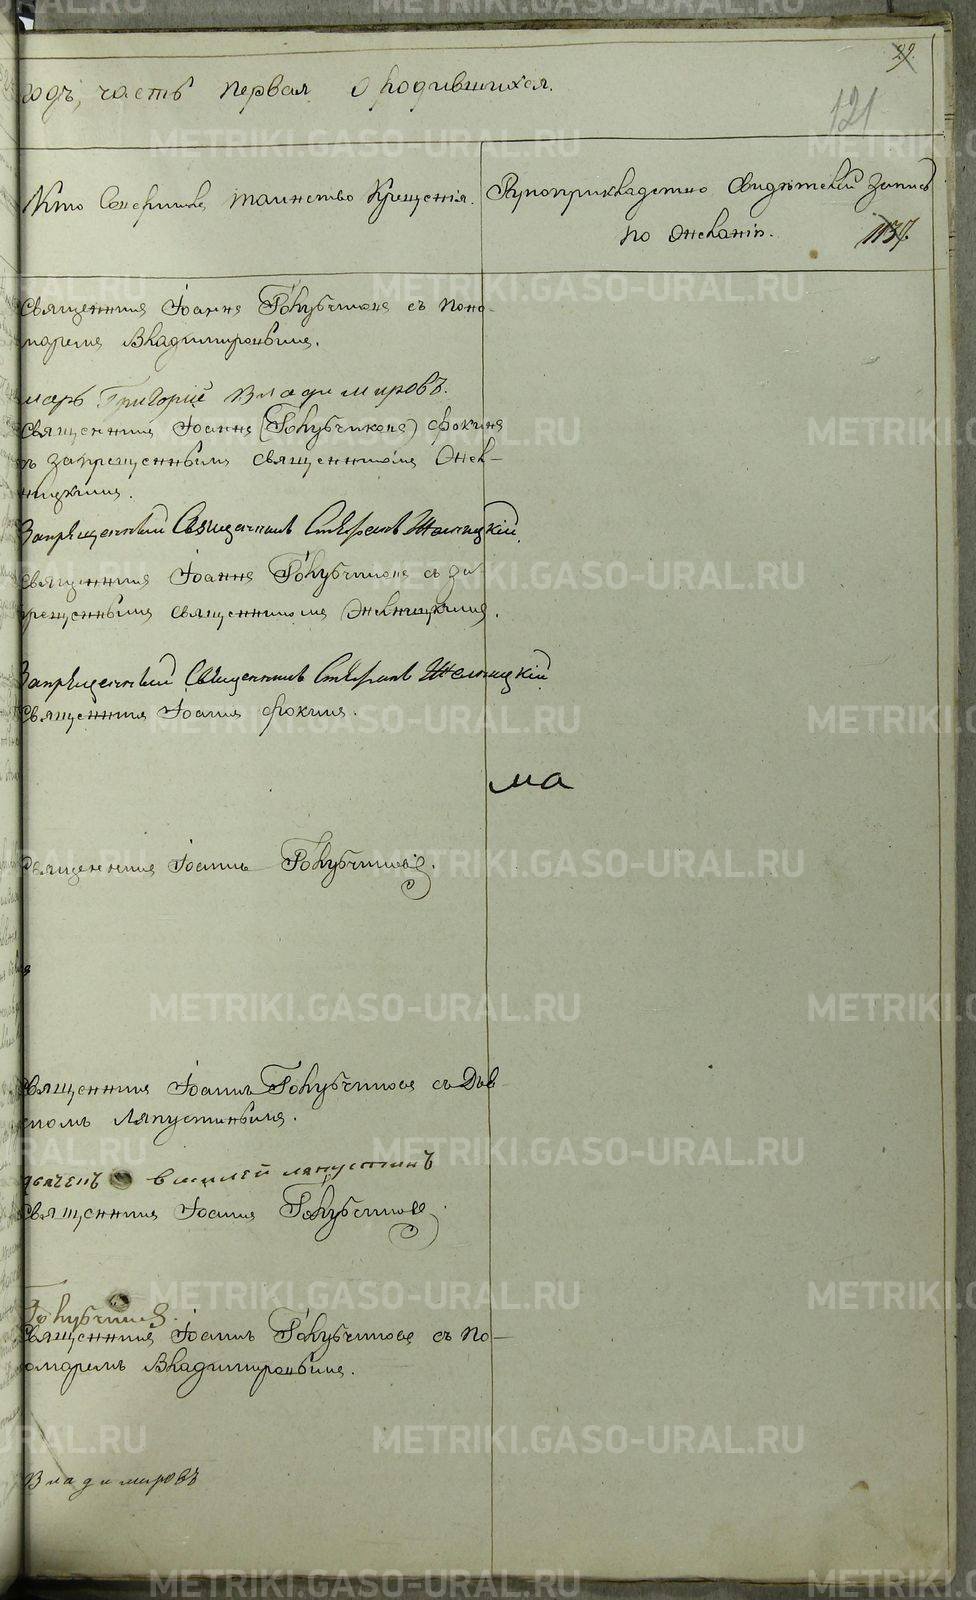 29.
годъ, часть первая о родившихся.
121
Кто Совершалъ таинство Крещенія.
Рукоприкладство Свидѣтелей Записи
по Желанію.
1137
Священникъ Іоаннъ Голубчиковъ съ Поно-
маремъ Владимировымъ.
марь Григорій Владимировъ.
Священникъ Іоаннъ (Голубчиковъ) Фокинъ
съ запрещеннымъ священникомъ
Запрещенный Священникъ Стефанъ
Священникъ Іоаннъ Голубчиковъ съ за
прещеннымъ священникомъ
Запрещенный Священникъ Стефанъ
Священникъ Іоаннъ Фокинъ.
ма
Священникъ Іоаннъ Голубчиковъ.
Священникъ Іоаннъ Голубчиковъ съ Дья
Ляпустинымъ.
дьячекъ Василей ляпустинъ
Священникъ Іоаннъ Голубчиковъ
Голубчиковъ.
Священникъ Іоаннъ Голубчиковъ съ По-
номаремъ Владимировымъ.
Владимировъ
METRIKI.GASO-URAL.RU